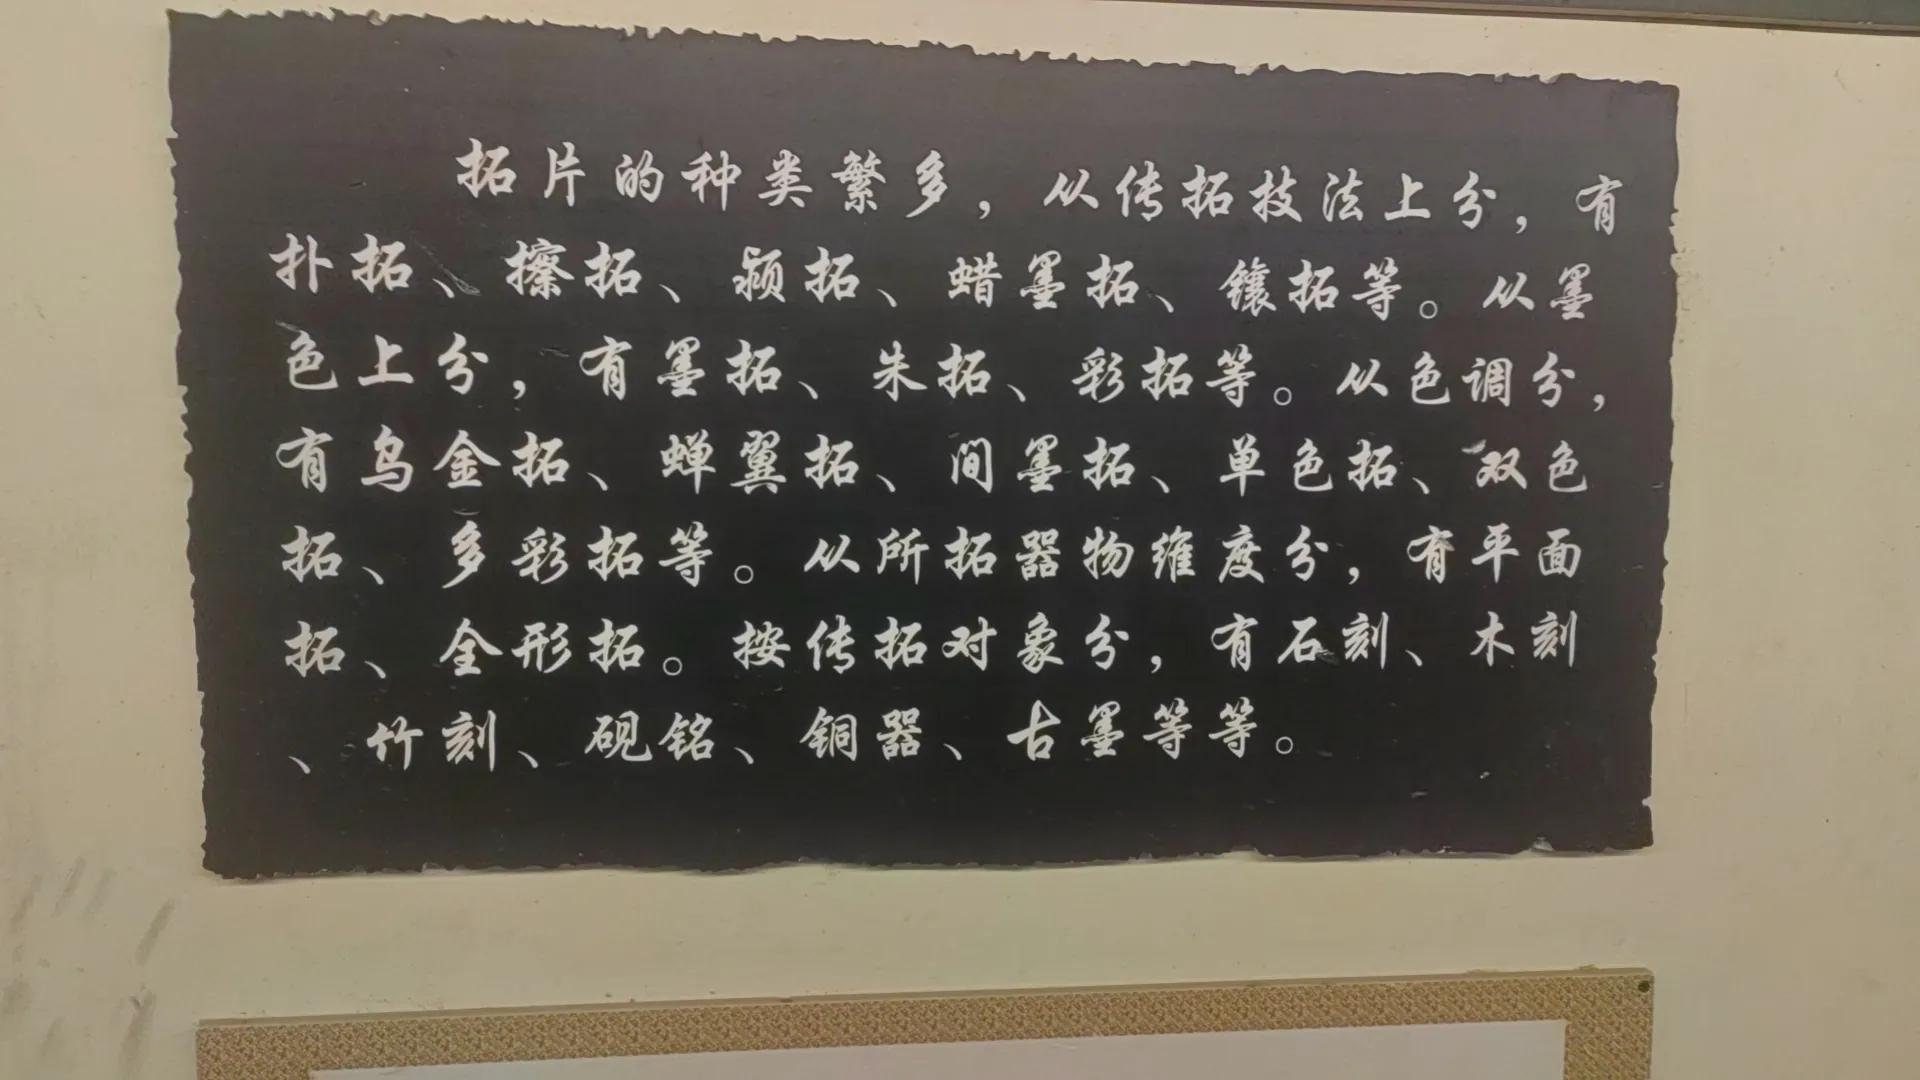 拓片的种类繁多，从传拓技法上分，有
扑拓、擦拓、颍拓、蜡墨拓、镶拓等。从墨
色上分，有墨拓、朱拓、彩拓等。从色调分，
有乌金拓、蝉翼拓、间墨拓、单色拓、双色
拓、多彩拓等。从所拓器物维度分，有平面
拓、全形拓。按传拓对象分，有石刻、木刻
、竹刻、砚铭、铜器、古墨等等。